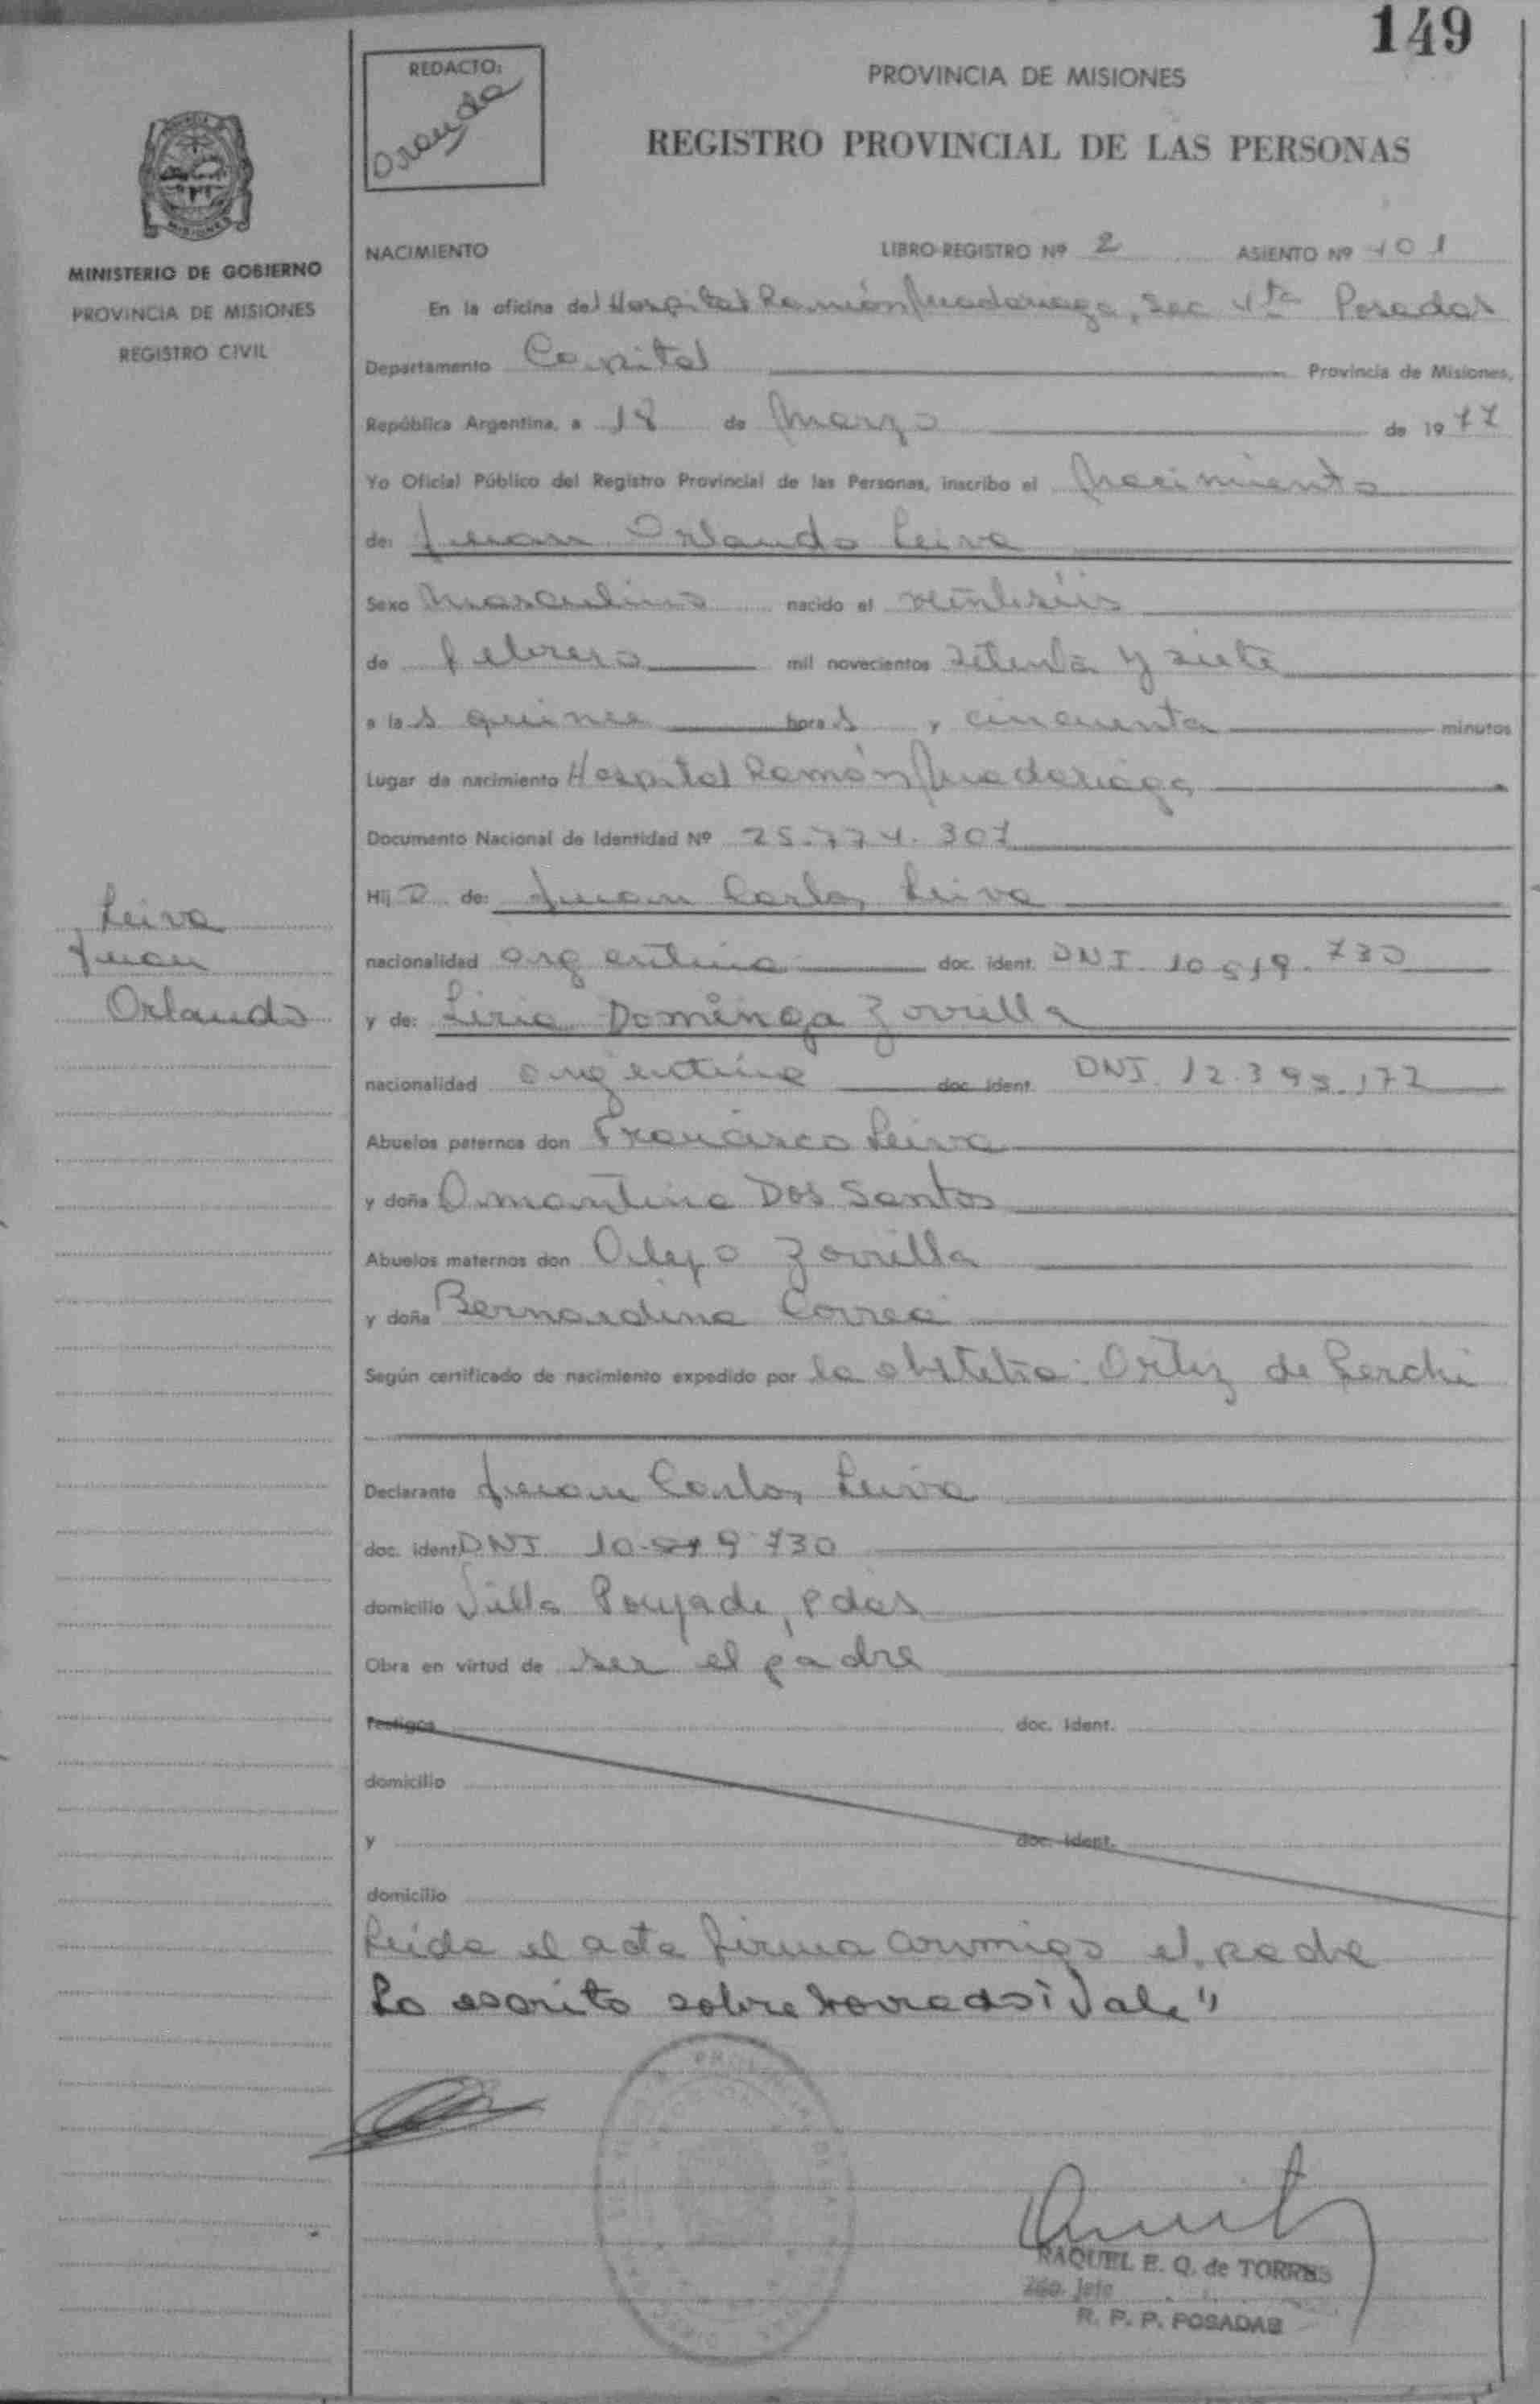 149
REDACTO:
PROVINCIA DE MISIONES
REGISTRO PROVINCIAL DE LAS PERSONAS
MISIONES
MINISTERIO DE GOBIERNO
PROVINCIA DE MISIONES
REGISTRO CIVIL
NACIMIENTO LIBRO-REGISTRO Nº 2 ASIENTO Nº 101
En la oficina del Hospital Ramón Madariaga, Sec Posadas
Departamento Capital Provincia de Misiones,
República Argentina, a 18 de Marzo de 1977
Yo Oficial Público del Registro Provincial de las Personas, inscribo el Nacimiento
de: Juan Orlando Leiva
Sexo Masculino nacido el veintiséis
de febrero mil novecientos setenta y siete
a las quince horas y cincuenta minutos
Lugar de nacimiento Hospital Ramón Madariaga
Documento Nacional de Identidad Nº 25.774.307
Hijo de: Juan Carlos Leiva
nacionalidad argentina doc. ident. DNI 10.519.730
Leiva
Juan
Orlando
y de: Liria Dominga Zorrilla
nacionalidad argentina doc. ident. DNI 12.395.172
Abuelos paternos don Francisco Leiva
y doña Amantina Dos Santos
Abuelos maternos don Alejo Zorrilla
y doña Bernardina Correa
Según certificado de nacimiento expedido por la obstetra: Ortiz de Lerchi
Declarante Juan Carlos Leiva
doc. ident DNI 10.519.730
domicilio Villa Poujade, Pdas
Obra en virtud de ser el padre
Testigos doc. ident.
domicilio
y doc. ident.
domicilio
Leída el acta firma conmigo el padre
Lo escrito sobre borrado: Vale"
RAQUEL E. Q. de TORRES
Jefe
R. P. P. POSADAS